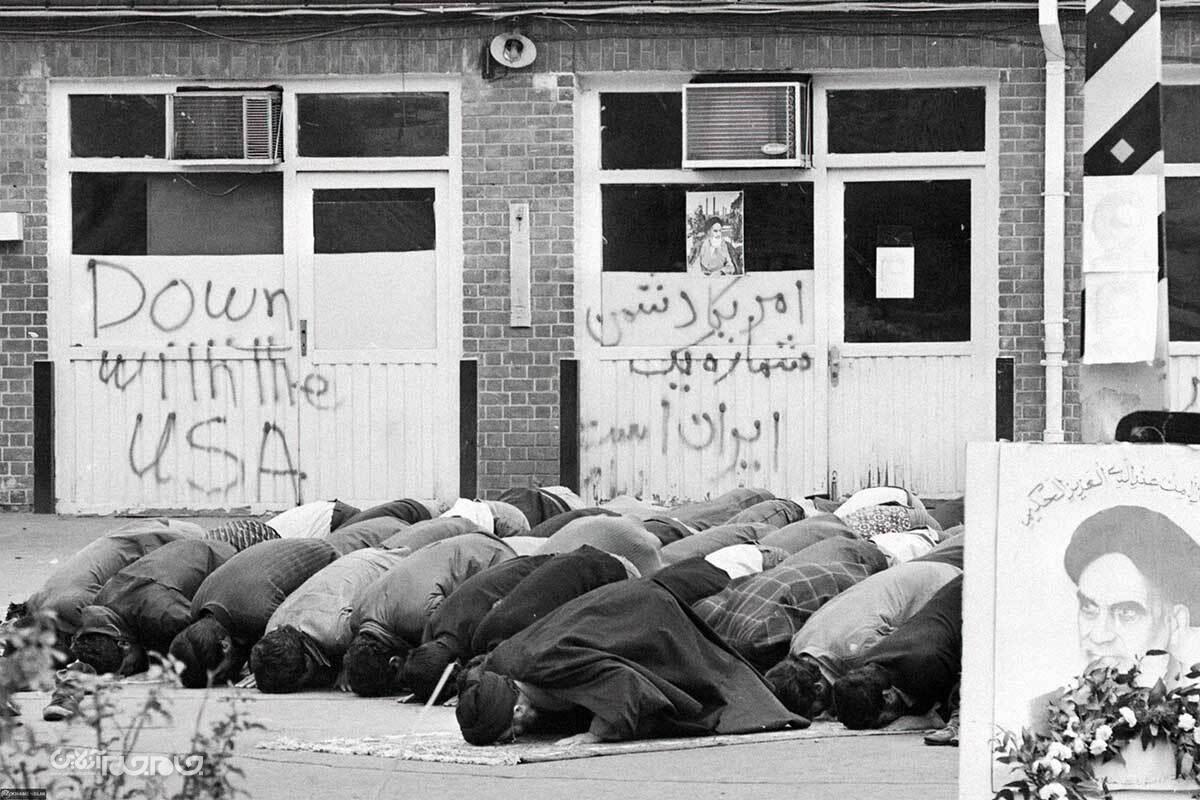 Down
with the
USA
امریکا دشمن
شماره یک
ایران است
العزیز الحکیم
جام جم آنلاین